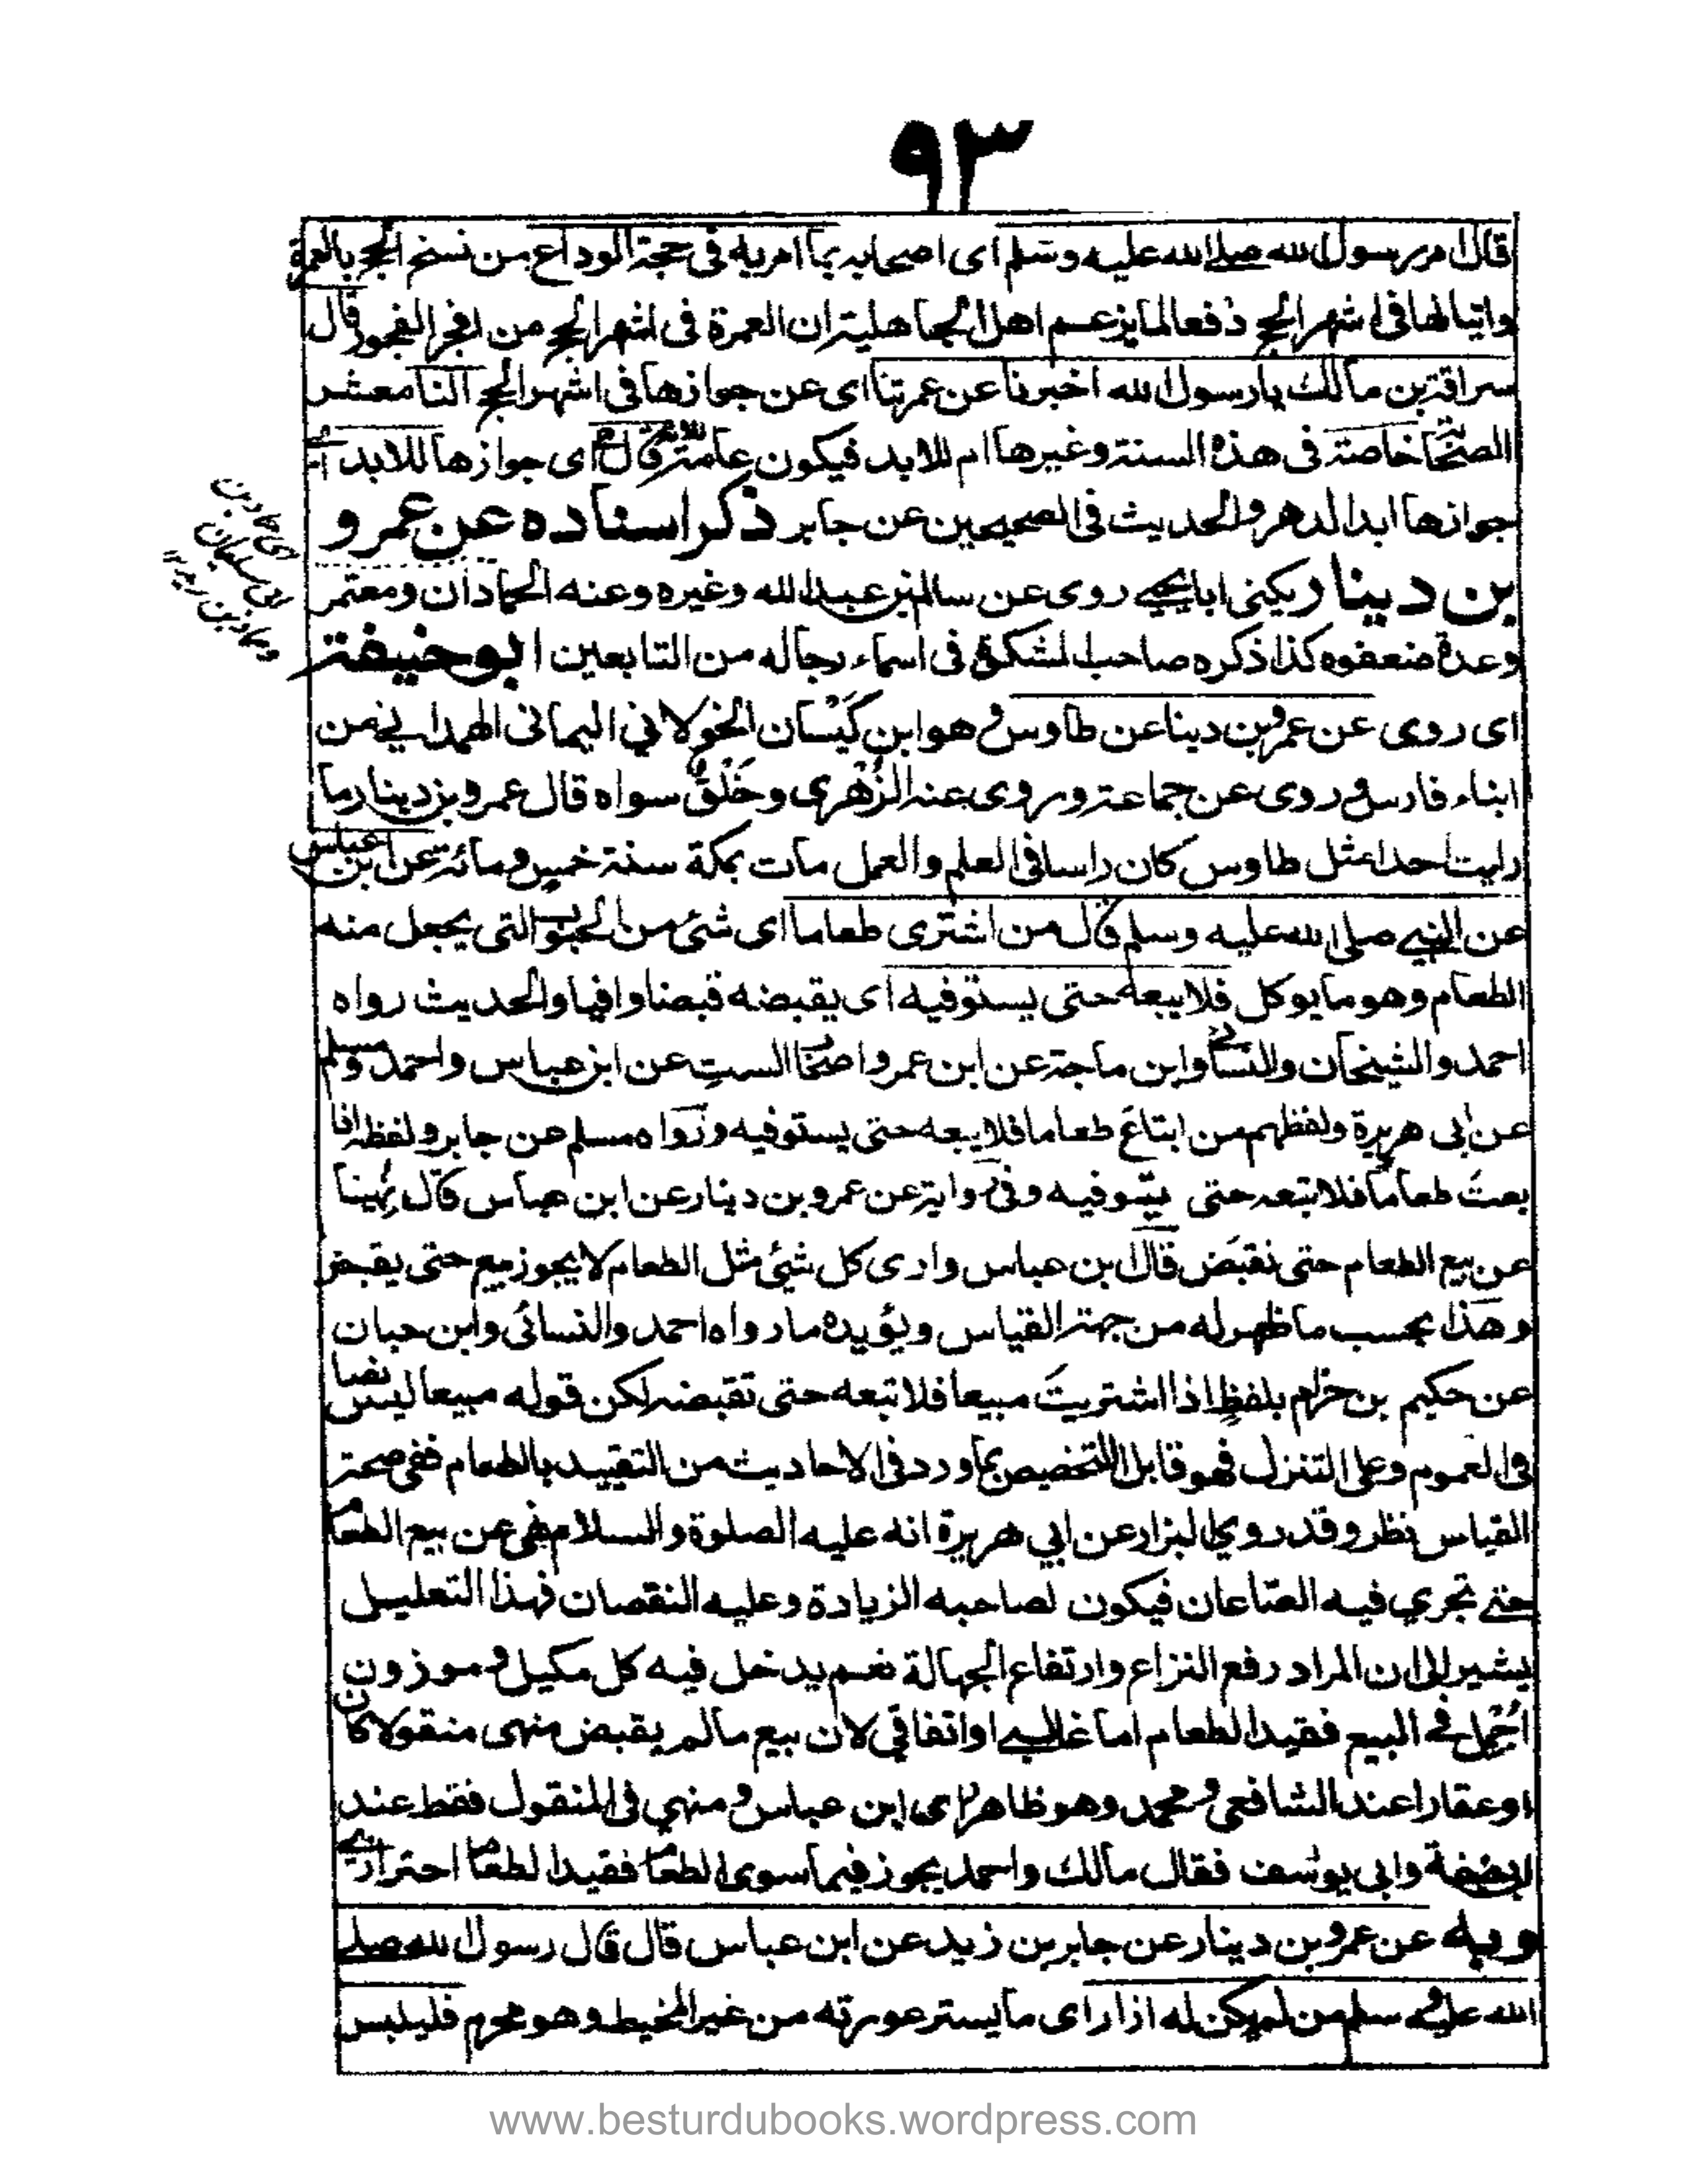 ٩٣
قال امر رسول الله صلى الله عليه وسلم اى اصحابه بما امر به فى حجة الوداع من نسخ الحج بالعمرة
واتيانها فى اشهر الحج دفعا لما يزعم اهل الجاهلية ان العمرة فى اشهر الحج من افجر الفجور قال
سراقة بن مالك يا رسول الله اخبرنا عن عمرتنا اى عن جوازها فى اشهر الحج النا معشر
الصحابة خاصة فى هذه السنة وغيرها ام للابد فيكون عامة قال اى جوازها للابد اى
جوازها ابد الدهر والحديث فى الصحيحين عن جابر ذكر اسناده عن عمرو
بن دينار يكنى ابا يحيى روى عن سالم بن عبد الله وغيره وعنه الحمادان ومعتمر
اى حماد بن
سليمان
وحماد بن زيد ١٢
وعدة ضعفوه كذا ذكره صاحب المشكوة فى اسماء رجاله من التابعين ابو حنيفة
اى روى عن عمرو بن دينا عن طاوس وهو ابن كَيْسَان الخولاني اليمانى الهمداني من
ابناء فارس وروى عن جماعة وروى عنه الزُّهْرى وخَلْقٌ سواه قال عمرو بن دينار ما
رايت احدا مثل طاوس كان راسا فى العلم والعمل مات بمكة سنة خمس ومائة عن ابن عباس
عن النبي صلى الله عليه وسلم قال من اشترى طعاما اى شئ من الحبوب التى يجعل منه
الطعام وهو ما يوكل فلا يبعه حتى يستوفيه اى يقبضه قبضا وافيا والحديث رواه
احمد والشيخان والنسائي وابن ماجة عن ابن عمر واصحاب الست عن ابن عباس واحمد ومسلم
عن ابى هريرة ولفظهم من ابتاعَ طعاما فلا يبعه حتى يستوفيه ورواه مسلم عن جابر ولفظه اذا
بعتَ طعاما فلا تبعه حتى يستوفيه وفى رواية عن عمرو بن دينار عن ابن عباس قال نُهينا
عن بيع الطعام حتى نقبَض قال ابن عباس وارى كل شئ مثل الطعام لا يجوز بيع حتى يقبض
وهذا بحسب ما ظهر له من جهة القياس ويؤيده ما رواه احمد والنسائى وابن حبان
عن حكيم بن حزام بلفظِ اذا اشتريتَ مبيعا فلا تبعه حتى تقبضه لكن قوله مبيعا ليس نصا
فى العموم وعلى التنزل فهو قابل التخصيص بما ورد فى الاحاديث من التقييد بالطعام ففى صحة
القياس نظر وقد روي البزار عن ابي هريرة انه عليه الصلوة والسلام نهى عن بيع الطعام
حتى تجري فيه الصّاعان فيكون لصاحبه الزيادة وعليه النقصان فهذا التعليل
يشير الى ان المراد رفع النزاع وارتفاع الجهالة نعم يدخل فيه كل مكيل وموزون
اُجمل فى البيع فقيد الطعام اما غالبي او اتفاقي لان بيع ما لم يقبض منهى منقولا كان
او عقارا عند الشافعى ومحمد وهو ظاهر راى ابن عباس ومنهي فى المنقول فقط عند
ابى حنيفة وابى يوسف فقال مالك واحمد يجوز فيما سوى الطعام فقيد الطعام احترازي
وبه عن عمرو بن دينار عن جابر بن زيد عن ابن عباس قال قال رسول الله صلى
الله عليه وسلم من لم يكن له ازار اى ما يستر عورته من غير المخيط وهو محرم فليلبس
www.besturdubooks.wordpress.com